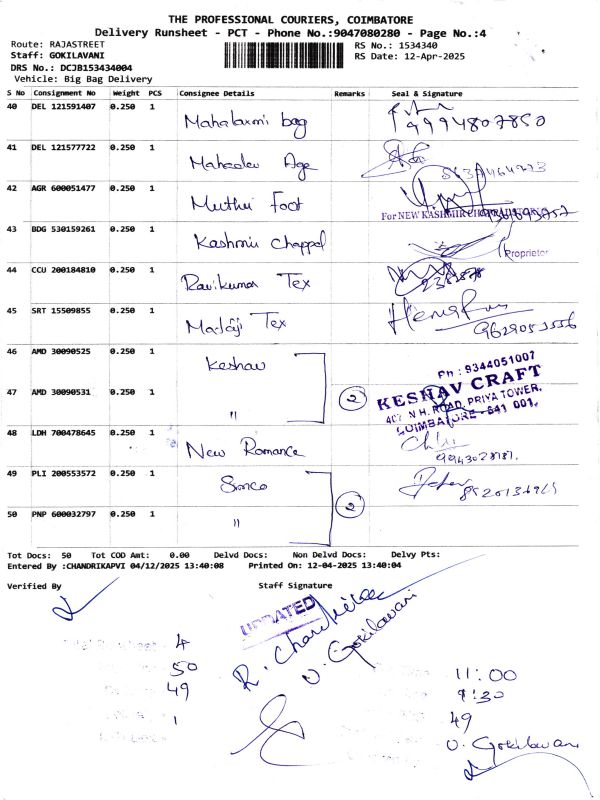 THE PROFESSIONAL COURIERS, COIMBATORE
Delivery Runsheet - PCT - Phone No.:9047080280 - Page No.:4
Route: RAJASTREET
Staff: GOKILAVANI
DRS No.: DCJB153434004
Vehicle: Big Bag Delivery
RS No.: 1534340
RS Date: 12-Apr-2025
S No Consignment No Weight PCS Consignee Details Remarks Seal & Signature
40 DEL 121591407 0.250 1 Mahalaxmi bag 9994807850
41 DEL 121577722 0.250 1 Mahadev Age
42 AGR 600051477 0.250 1 Muthu Foot
For NEW KASHMIR
43 BDG 530159261 0.250 1 Kashmir Chappal Proprietor
44 CCU 200184810 0.250 1 Ravikumar Tex
45 SRT 15509855 0.250 1 Madaji Tex 9629053556
46 AMD 30090525 0.250 1 Keshav
Ph : 9344051007
KESHAV CRAFT
407 N.H. ROAD, PRIYA TOWER,
COIMBATORE - 641 001.
47 AMD 30090531 0.250 1 " 2
48 LDH 700478645 0.250 1 New Romance
49 PLI 200553572 0.250 1
50 PNP 600032797 0.250 1 " 2
Tot Docs: 50 Tot COD Amt: 0.00 Delvd Docs: Non Delvd Docs: Delvy Pts:
Entered By :CHANDRIKAPVI 04/12/2025 13:40:08 Printed On: 12-04-2025 13:40:04
Verified By Staff Signature
UPDATED
R. Chandrika
V. Gokilavani
4
50
49
1
11:00
1:30
49
V. Gokilavani